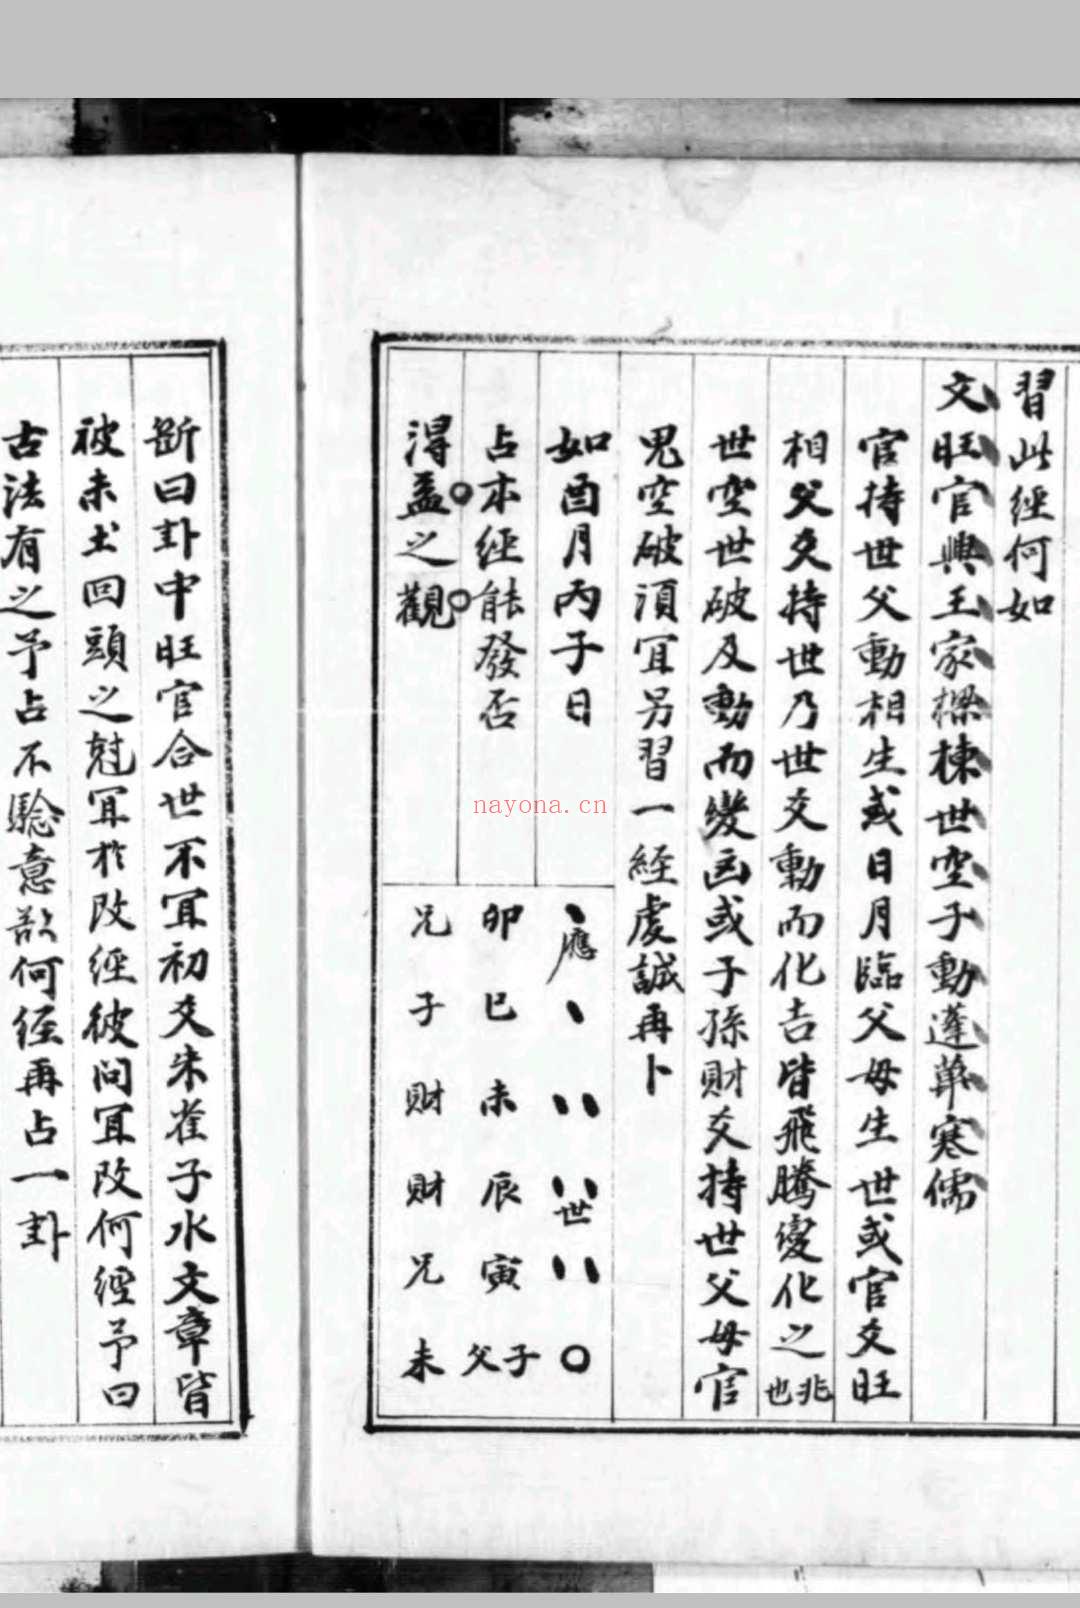 習此經何如
文旺官興王家樑棟世空子動蓬蓽寒儒
官持世父動相生或日月臨父母生世或官爻旺
相父爻持世乃世爻動而化吉皆飛騰變化之兆也
世空世破及動而變凶或子孫財爻持世父母官
鬼空破須宜另習一經虔誠再卜
如酉月丙子日
占本經能發否
得益之觀
應 世
卯 巳 未 辰 寅 子父
兄 子 財 財 兄 未
斷曰卦中旺官合世不宜初爻朱雀子水文章皆
被未土回頭之尅宜於改經彼問宜改何經予曰
古法有之予占不驗意欲何經再占一卦
nayona.cn